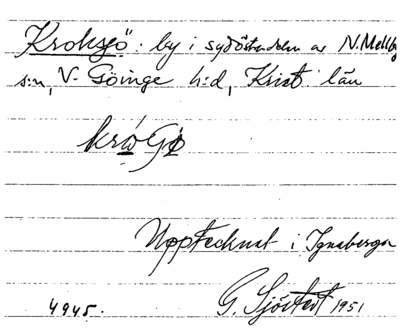 Kroksjö: by i sydöstra delen av N. Mellby
s:n, V. Göinge h:d, Krist. län
Upptecknat i Ignaberga
4945. G. Sjöstedt 1951